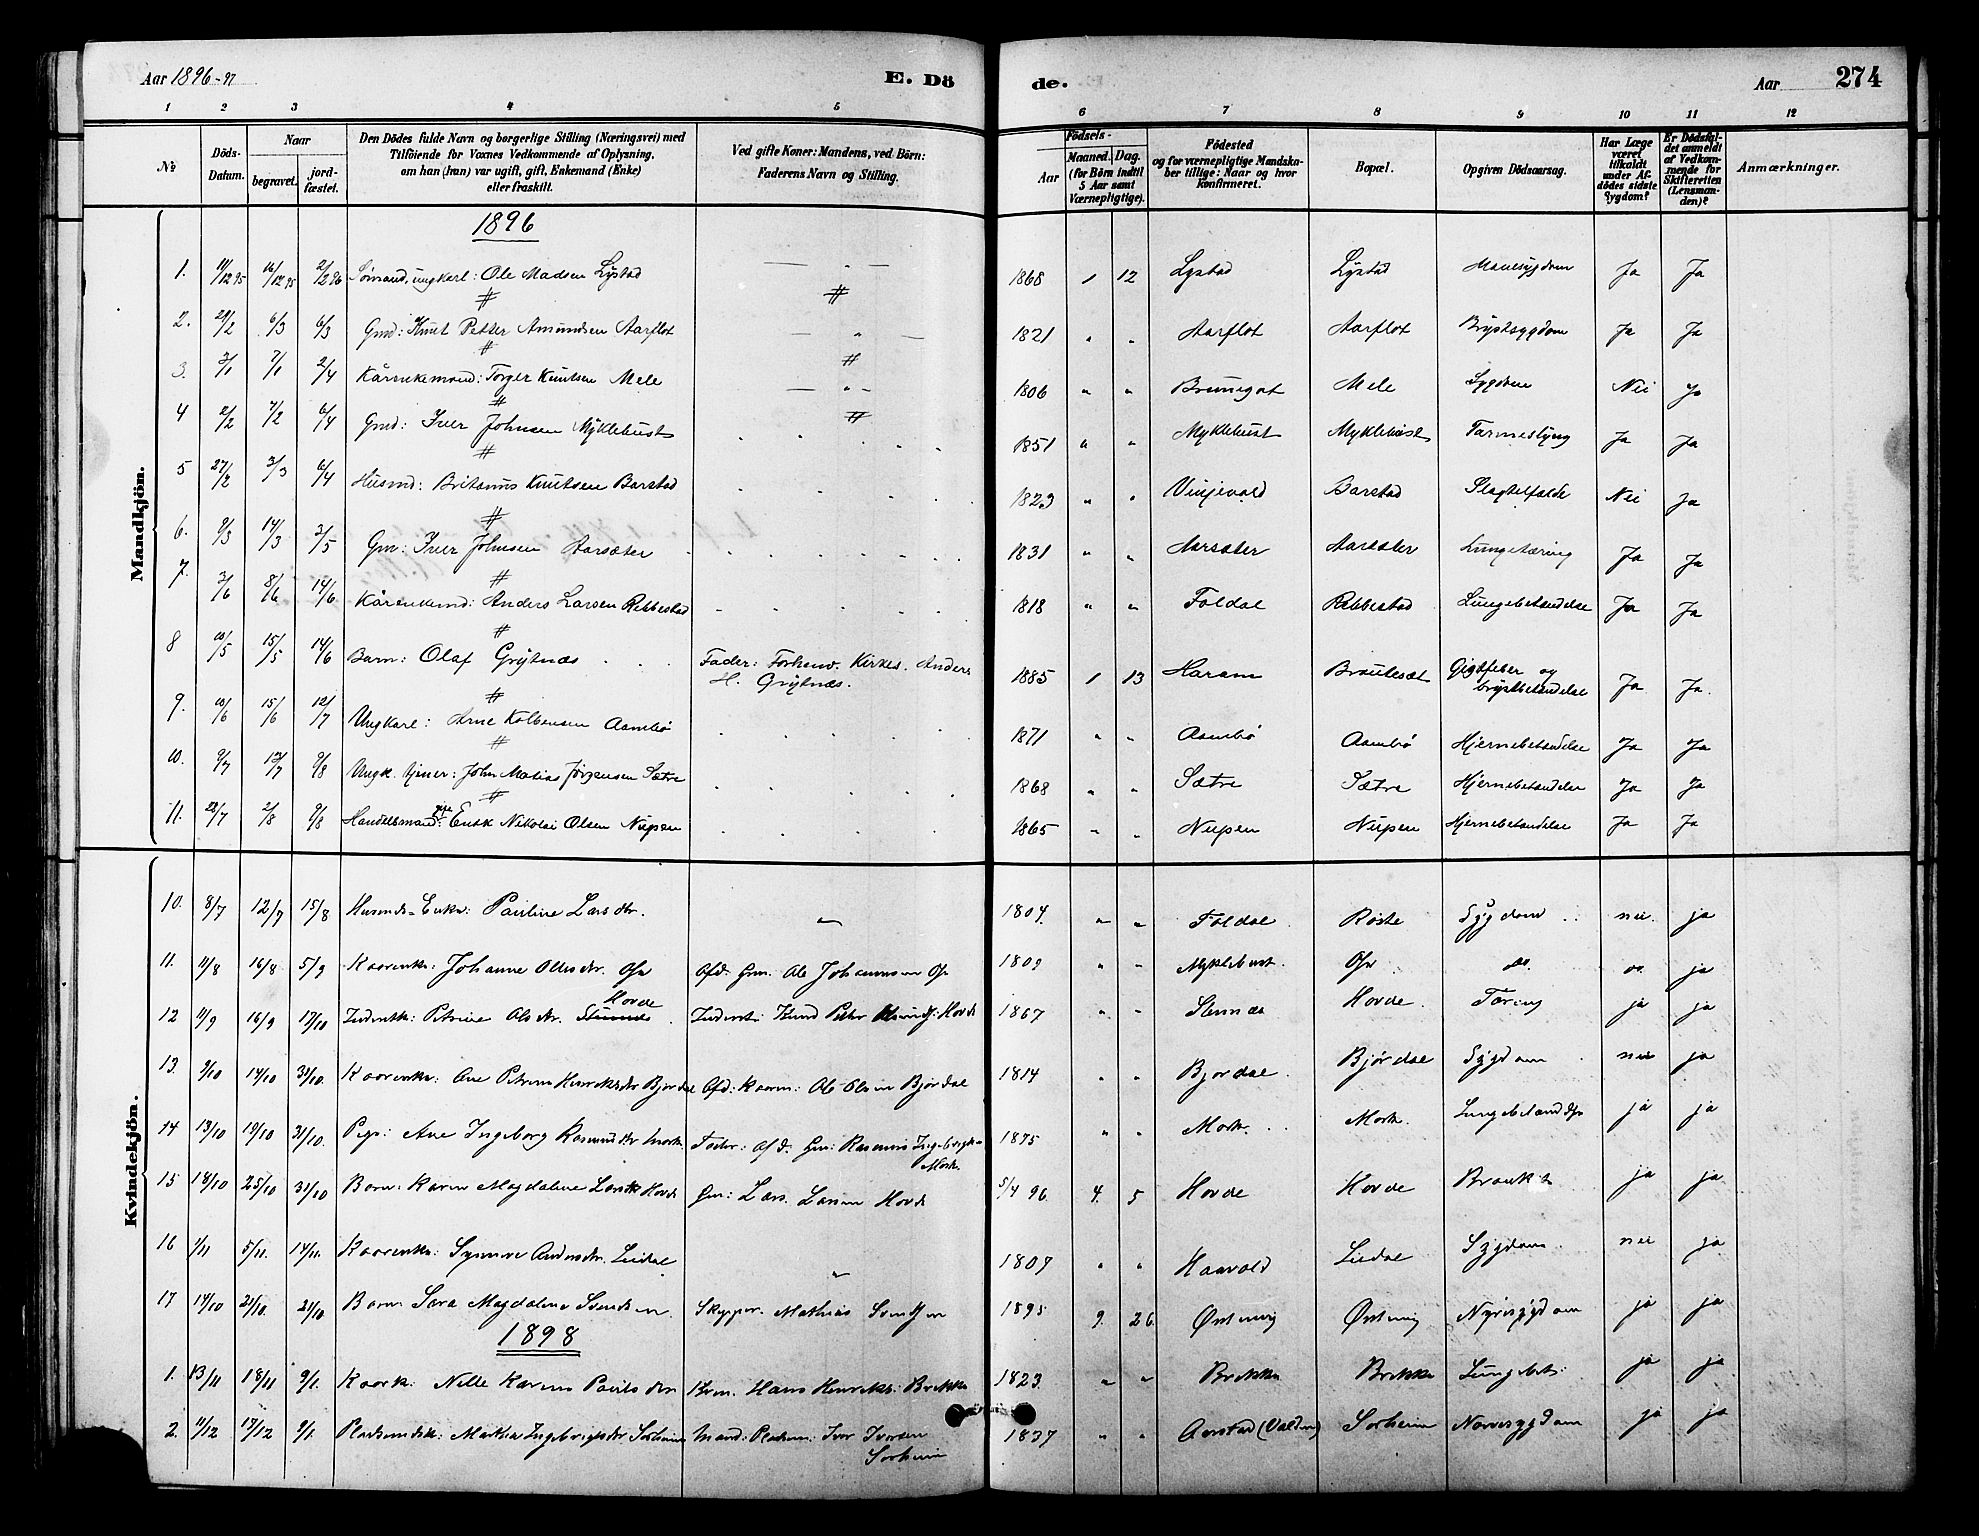 Aar 1896-97
E. Dö
de.
Aar
274
1 2 3 4 5 6 7 8 9 10 11 12
№
Döds-Datum.
Naar
begravet.
jordfæstet.
Den Dödes fulde Navn og borgerlige Stilling (Næringsvei) med
Tilföiende for Voxnes Vedkommende af Oplysning,
om han (hun) var ugift, gift, Enkemand (Enke)
eller fraskilt.
Ved gifte Koner: Mandens, ved Börn:
Faderens Navn og Stilling.
Födsels-
Aar
Maaned. Dag.
(for Börn indtil
5 Aar samt
Værnepligtige).
Födested
og for værnepligtige Mandska-
ber tillige: Naar og hvor
konfirmeret.
Bopæl.
Opgiven Dödsaarsag.
Har Læge
været
tilkaldt
under Af-
dödes sidste
Sygdom?
Er Dödsfal-
det anmeldt
af Vedkom-
mende for
Skifteretten
(Lensman-
den)?
Anmærkninger.
Mandkjön.
1896
1. 11/12 95 16/12 95 2/2 96 Sømand, ungkarl: Ole Madsen Lystad 1868 1 12 Lystad Lystad Mavesygdom Ja Ja
2. 29/2 6/3 6/3 Gmd: Knut Petter Amundsen Aarflot 1821 " " Aarflot Aarflot Brystsygdom Ja Ja
3. 3/1 7/1 2/4 Kårenkemand: Torger Knutsen Mele 1806 " " Brunegot Mele Sygdom Nei Ja
4 2/2 7/2 6/4 Gmd: Iver Johnsen Myklebust 1851 " " Myklebust Myklebust Tarmeslyng Ja Ja
5 27/2 3/3 6/4 Husmd: Britanus Knutsen Barstad 1823 " " Vinjevold Barstad Slagtilfælde Nei Ja
6. 9/3 14/3 3/5 Gm: Iver Johnsen Aarsæter 1831 " " Aarsæter Aarsæter Lungetæring Ja Ja
7. 3/6 8/6 14/6 Kårenkemd: Anders Larsen Rebbestad 1818 " " Foldal Rebbestad Lungebetændelse Ja Ja
8 10/5 15/5 14/6 Barn: Olaf Grytnæs Fader: Forhenv. Kirkes. Anders
H. Grytnæs. 1885 1 13 Haram Brautesæt Gigtfeber og
brystbetændelse Ja Ja.
9. 10/6 15/6 12/7 Ungkarl: Arne Kolbensen Aambø 1871 " " Aambø Aambø Hjernebetændelse Ja Ja
10. 9/7 12/7 9/8 Ungk. tjener: John Matias Jørgensen Sætre 1868 " " Sætre Sætre Hjernebetændelse Ja Ja
11. 28/7 2/8 9/8 Handelsmand: Enok Nikolai Olsen Nupen 1865 " " Nupen Nupen Hjernebetændelse Ja Ja
Kvindekjön.
10. 8/7 12/7 15/8 Husmds-Enke: Pauline Larsdtr. " 1804. " " Foldal Røste Sygdom nei. ja
11. 11/8 16/8 5/9 Kaarenk: Johanne Olsdtr. Ose Afd: Gm. Ole Johannesen Ose 1809 " " Myklebust Ose do. do. ja
12 11/9 16/9 17/10 Inderstk: Petrine Olsdtr. Hovde Inderst: Knud Petter Hovde 1867 " " Stennes Hovde. Tæring ja ja
13. 9/10 14/10 31/10. Kaarenke: Ane Petrine Henriksdtr Bjørdal Afd: Kaarm: Ole Olsen Bjørdal 1814 " " Bjørdal. Bjørdal Sygdom nei ja
14 13/10 19/10 31/10. Pige: Ane Ingeborg Rasmusdtr Mork. Fader: Afd. Gm: Rasmus Ingebrigts.
Mork. 1875 " " Mork. Mork. Lungebetændelse ja ja
15 18/10 25/10 31/10 Barn: Karen Magdalene Larsdtr Hovde Gm: Lars Larsen Hovde 5/4 96. 4. 5 Hovde Hovde ja ja
16 1/11 5/11. 14/11. Kaarenke: Synneve Andersdtr. Liedal " 1807 " " Haavold Liedal Sygdom. nei ja
17 14/10 21/10. 21/10 Barn Sara Magdalene Svendsen Skipper. Mathias Svendsen 1895 9. 26. Østensvig Østensvig Nyresygdom ja ja
1898
1. 13/11 18/11 9/1. Kaark: Nelle Karine Paulsdtr Krm. Hans Henriks: Brekke 1823. " " Brekke Brekke Lungebet: ja ja
2. 11/12 17/12 9/1. Pladsmdsk: Marthe Ingebrigtsdtr Sørheim Mand: Pladsm: Iver Iversen
Sørheim 1837 " " Aarstad (Valden) Sørheim Nervesygdom ja ja